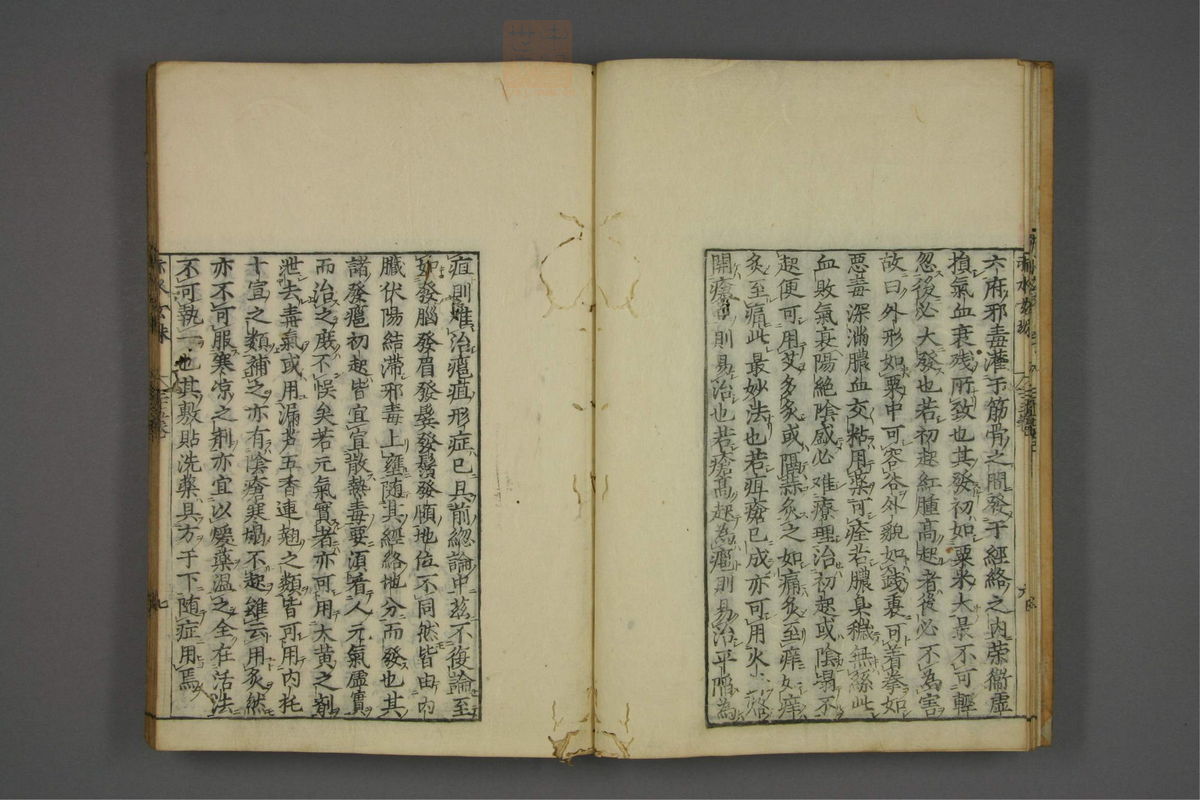 六府邪毒灌于筋骨之間發于經絡之内荣衞虚
損氣血衰残所致也其發初如粟米大最不可輕
忽後必大發也若初起紅腫高起者後必不為害
故曰外形如粟中可容谷外貌如錢裏可着拳如
惡毒深滿膿血交粘用藥可痊若膿臭穢無絲此
血敗氣衰陽絶陰盛必难療理治初起或陰塌不
起便可用艾多灸或隔蒜灸之如痛灸至痒如痒
灸至痛此最妙法也若疽瘡已成亦可用火烙
開瘡口則易治也若瘡高起為癰則易治平陷為
疽則難治癰疽形症已具前總論中兹不復論至
如發腦發眉發鬢發鬚發頤地位不同然皆由内
臓伏陽結滯邪毒上壅随其經絡地分而發也其
諸發癰初起皆宜宣散熱毒要須看人元氣虚實
而治之庶不悞矣若元氣實者亦可用大黄之剤
泄去毒氣或用漏芦五香連翹之類皆可用内托
十宣之類補之亦有陰瘡寒塌不起雖云用灸然
亦不可服寒凉之剤亦宜以煖藥温之全在活法
不可執一也其敷貼洗藥具方于下随症用焉
七